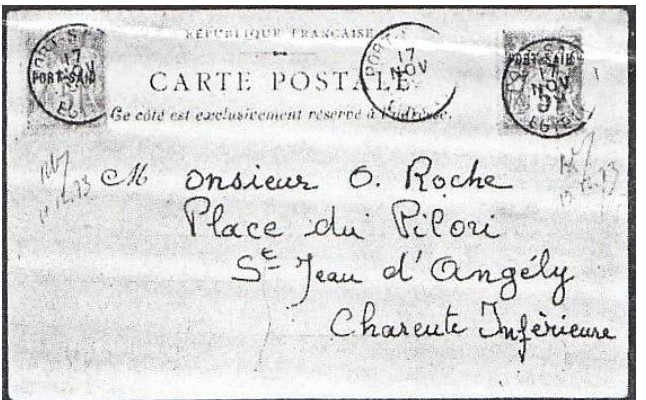 RÉPUBLIQUE FRANÇAISE
CARTE POSTALE
Ce côté est exclusivement réservé à l'adresse.
PORT-SAID
17
NOV
PORT
17
NOV
PORT-SAID
17
NOV
EGYPTE
M onsieur O. Roche
Place du Pilori
St Jean d'Angély
Charente Inférieure